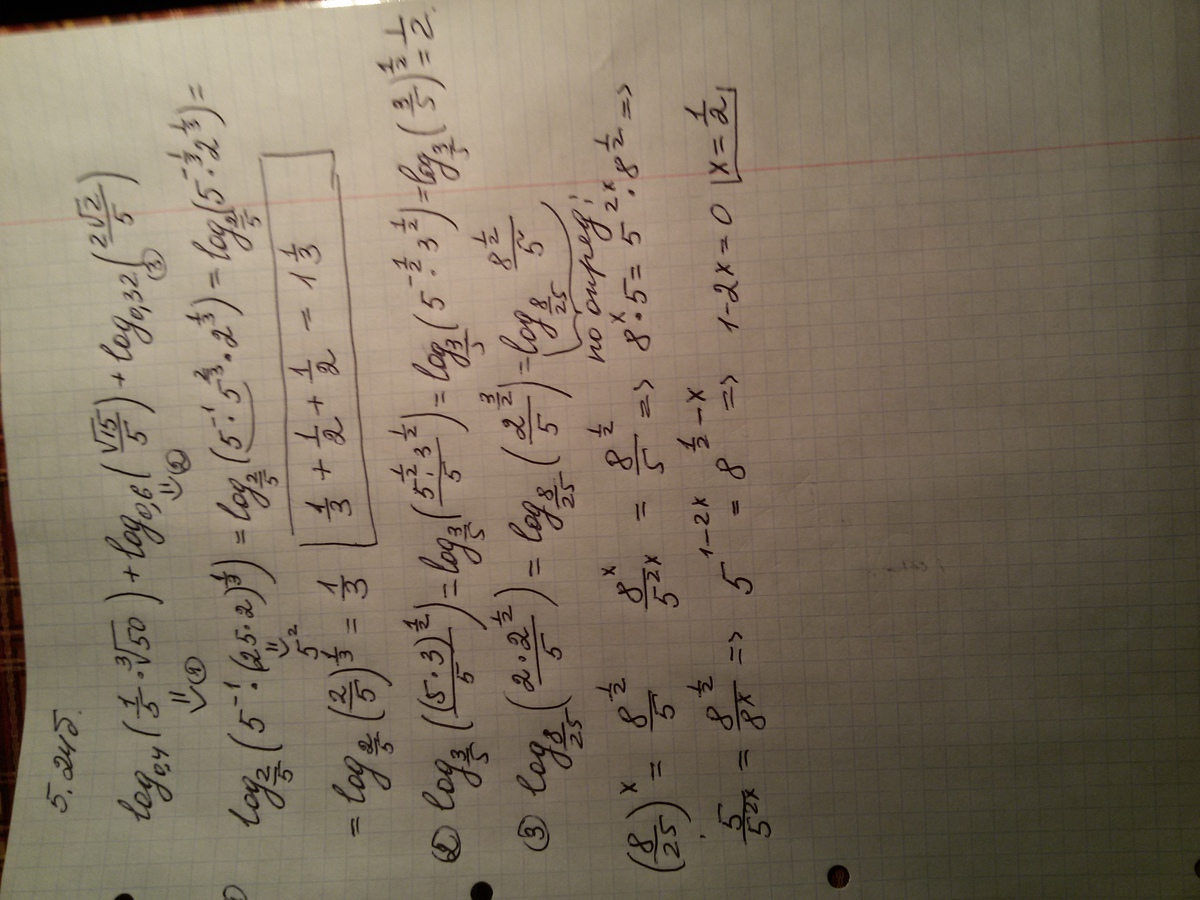 5.24б.
log₀,₄(1/5 · ³√50) + log₀,₆(√15/5) + log₀,₃₂(2√2/5)
① ② ③
log_{2/5}(5⁻¹ · (25·2)^{1/3}) = log_{2/5}(5⁻¹ · 5^{2/3} · 2^{1/3}) = log_{2/5}(5^{-1/3} · 2^{1/3}) =
5²
= log_{2/5}(2/5)^{1/3} = 1/3
1/3 + 1/2 + 1/2 = 1 1/3
② log_{3/5}((5·3)^{1/2}/5) = log_{3/5}(5^{1/2}·3^{1/2}/5) = log_{3/5}(5^{-1/2} · 3^{1/2}) = log_{3/5}(3/5)^{1/2} = 1/2.
③ log_{8/25}(2·2^{1/2}/5) = log_{8/25}(2^{3/2}/5) = log_{8/25} 8^{1/2}/5
по опред;
(8/25)^x = 8^{1/2}/5 8^x/5^{2x} = 8^{1/2}/5 => 8^x · 5 = 5^{2x} · 8^{1/2} =>
5/5^{2x} = 8^{1/2}/8^x => 5^{1-2x} = 8^{1/2-x} => 1-2x=0 x=1/2